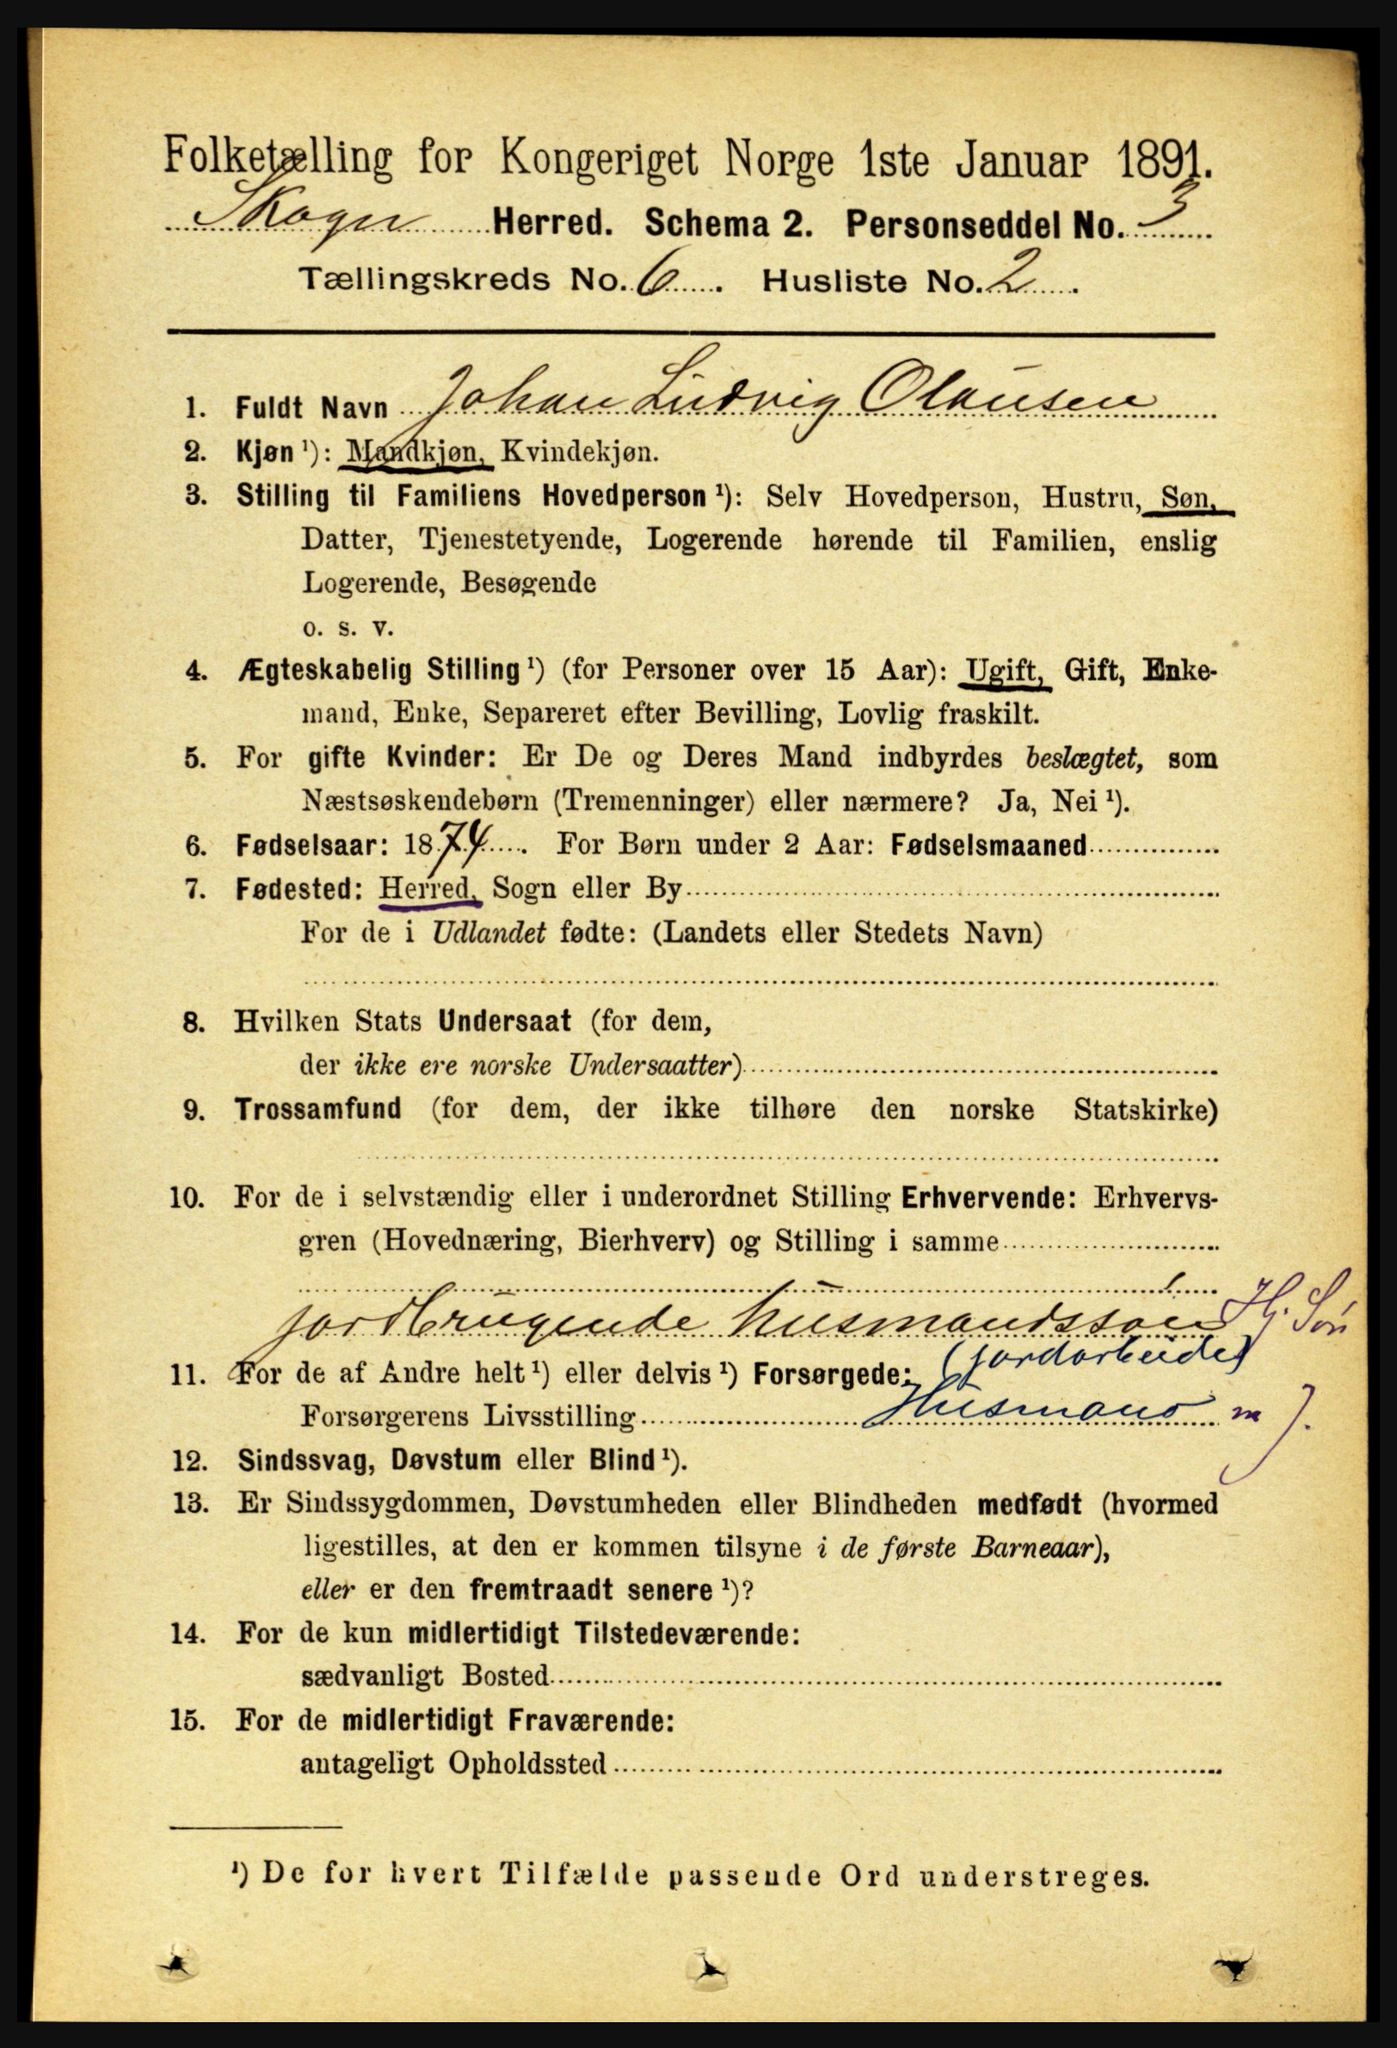 Folketælling for Kongeriget Norge 1ste Januar 1891.
Skogn Herred. Schema 2. Personseddel No. 3
Tællingskreds No. 6. Husliste No. 2.
1. Fuldt Navn Johan Ludvig Olausen
2. Kjøn ¹): Mandkjøn, Kvindekjøn.
3. Stilling til Familiens Hovedperson ¹): Selv Hovedperson, Hustru, Søn,
Datter, Tjenestetyende, Logerende hørende til Familien, enslig
Logerende, Besøgende
o. s. v.
4. Ægteskabelig Stilling ¹) (for Personer over 15 Aar): Ugift, Gift, Enke-
mand, Enke, Separeret efter Bevilling, Lovlig fraskilt.
5. For gifte Kvinder: Er De og Deres Mand indbyrdes beslægtet, som
Næstsøskendebørn (Tremenninger) eller nærmere? Ja, Nei ¹).
6. Fødselsaar: 1874. For Børn under 2 Aar: Fødselsmaaned
7. Fødested: Herred, Sogn eller By
For de i Udlandet fødte: (Landets eller Stedets Navn)
8. Hvilken Stats Undersaat (for dem,
der ikke ere norske Undersaatter)
9. Trossamfund (for dem, der ikke tilhøre den norske Statskirke)
10. For de i selvstændig eller i underordnet Stilling Erhvervende: Erhvervs-
gren (Hovednæring, Bierhverv) og Stilling i samme
jordbrugende husmandssøn Hj. Søn
(jordarbeide)
11. For de af Andre helt ¹) eller delvis ¹) Forsørgede:
Forsørgerens Livsstilling Husmand m J.
12. Sindssvag, Døvstum eller Blind ¹).
13. Er Sindssygdommen, Døvstumheden eller Blindheden medfødt (hvormed
ligestilles, at den er kommen tilsyne i de første Barneaar),
eller er den fremtraadt senere ¹)?
14. For de kun midlertidigt Tilstedeværende:
sædvanligt Bosted
15. For de midlertidigt Fraværende:
antageligt Opholdssted
¹) De for hvert Tilfælde passende Ord understreges.